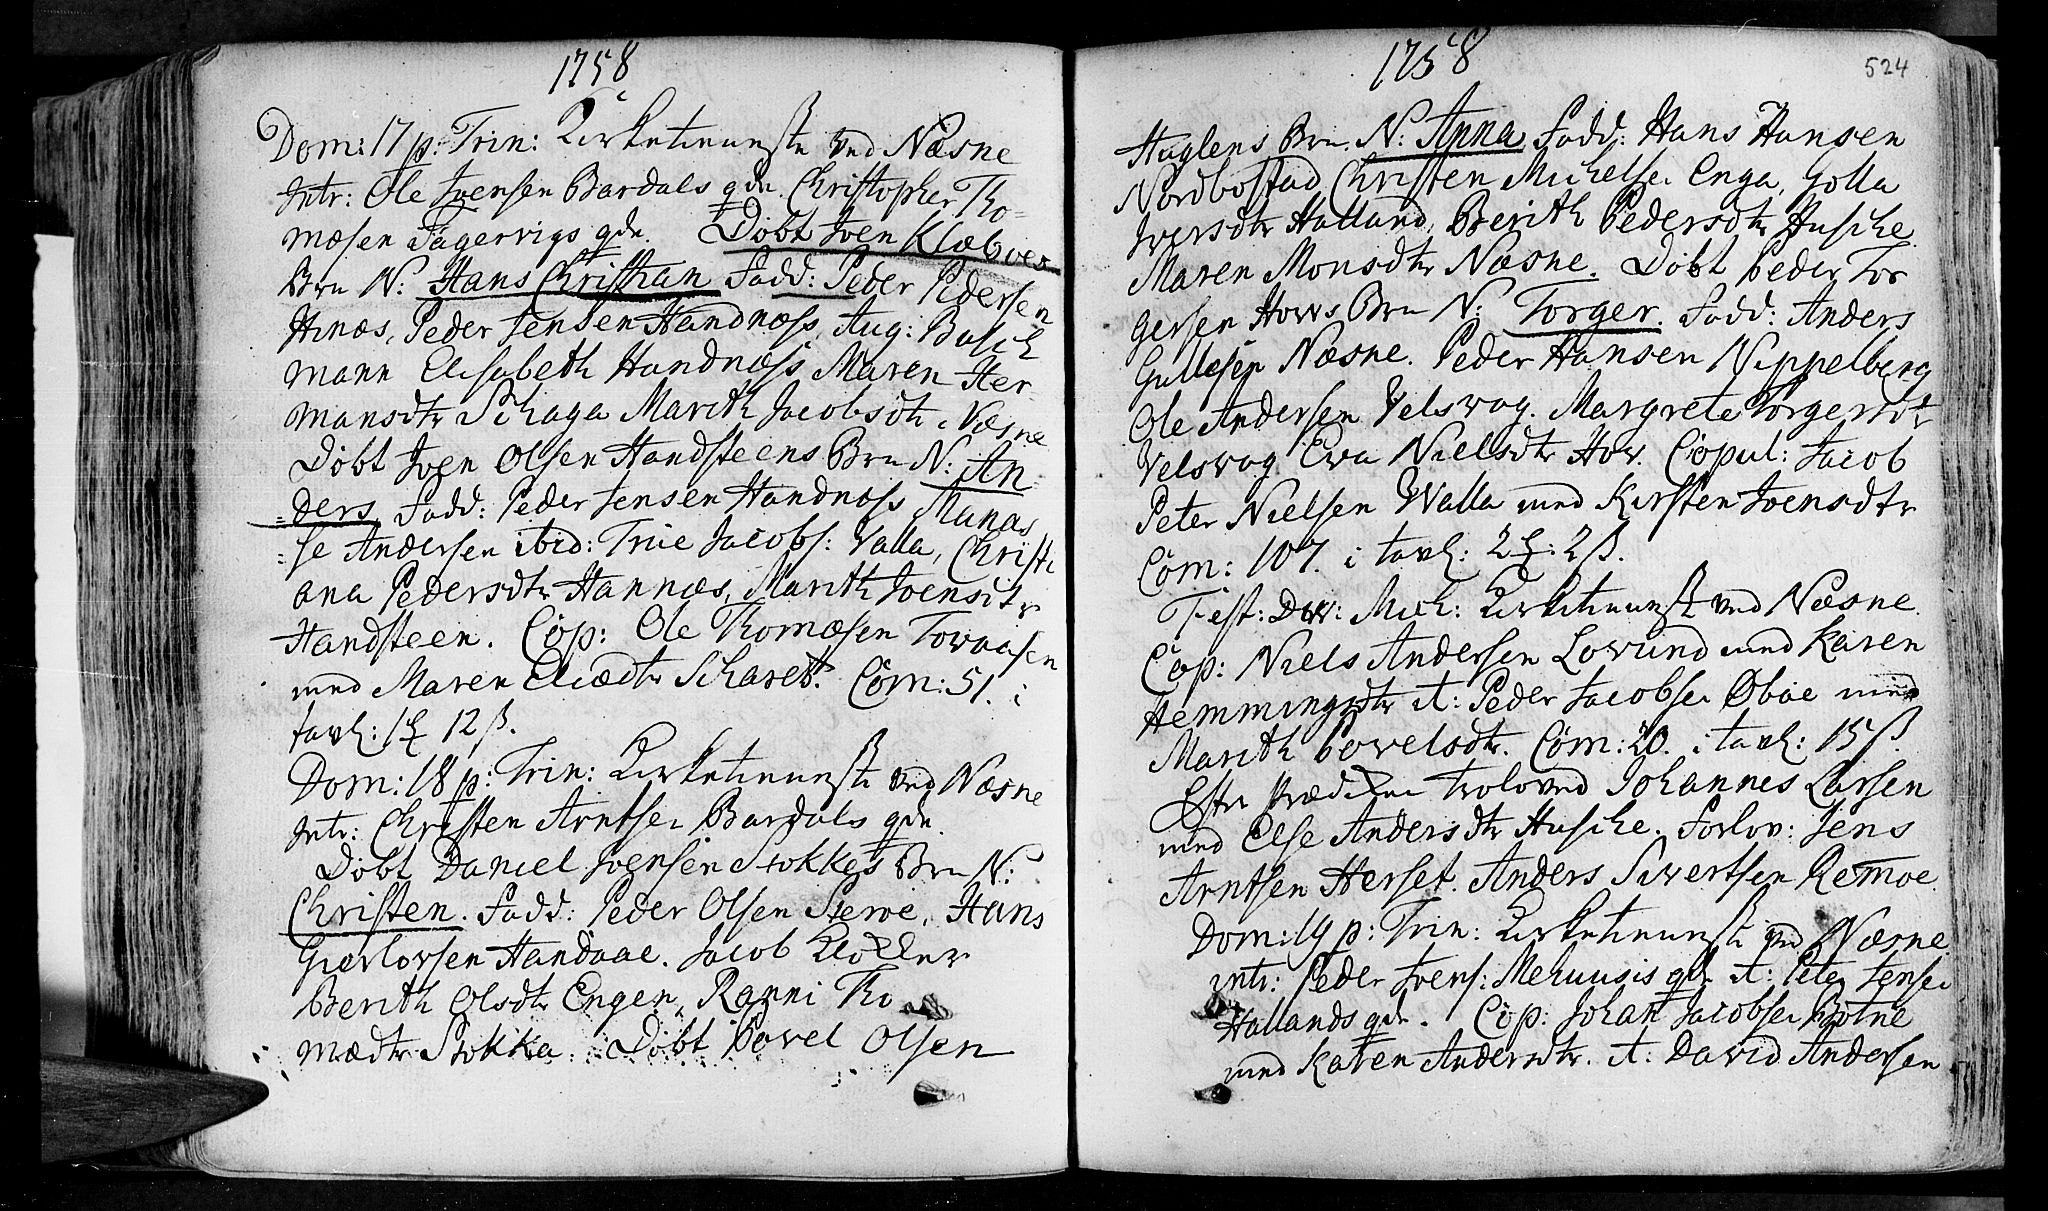 1758
Dom: 17 p: Trin: Kirketienneste ved Næsne
Intr: Ole Ivensen Bardals qde. Christopher Tho-
mæsen Fagervigs qde. Døbt Iven Klæboes
Brn N: Hans Christian Fadd: Peder Pedersen
Hinæs, Peder Jensen Handnæss, Aug: Busch
mann Elisabeth Handnæss Maren Her
mansdtr Schaga Marith Jacobsdtr Næsne
Døbt Iven Olsen Handsteens Brn N: An
=ders Fadd: Peder Jensen Handnæss Manas
=se Andersen ibid: Trie Jacobs: Valla, Christi
ana Pedersdtr Hannæs, Marith Ivensdtr
Handsteen. Cop: Ole Thomæsen Toraasen
med Maren Eliædtr Scharet. Com: 51. i
tavl: 1 12 ß.
Dom: 18 p: Trin: Kirketienneste ved Næsne
Intr: Christen Arntsen Bardals qde.
Døbt Daniel Ivensen Stokkes Brn N:
Christen. Fadd: Peder Olsen Herroe, Hans
Giærlovsen Handaae. Jacob Klokker
Berith Olsdtr Engen, Ranni Tho
mædtr Stokka. Døbt Povel Olsen
1758
524
Haglens Brn. N: Anna Fadd: Hans Hansen
Nordbostad Christen Michelsen Enga, Golla
Iversdtr Halland, Berith Pedersdtr Husche
Maren Monsdtr Næsne. Døbt Peder Tor
gersen Hows Brn N: Torger. Fadd: Anders
Gullesen Næsne. Peder Hansen Nippelberg
Ole Andersen Velsvog. Margrete Torgersdtr
Velsvog Ewa Nielsdtr How. Copul: Jacob
Peter Nielsen Walla med Kirsten Ivensdtr
Com: 107. i tavl: 2 : 2 ß.
Fest: Div: Mich: Kirketienneste ved Næsne.
Cop: Niels Andersen Lovund med Karen
Hemmingsdtr it: Peder Jacobsen Øboe med
Marith Povelsdtr. Com: 20. i tavl: 15 ß.
Efter Prædiken trolovet Johannes Larsen
med Else Andersdtr Husche. Forlov: Jens
Arntsen Herset. Anders Siwertsen Remoe.
Dom: 19 p: Trin: Kirketienneste ved Næsne
intr: Peder Ivens: Mehuusis qde it: Peter Jensen
Hallands qde. Cop: Johan Jacobsen Botne
med Karen Andersdtr. it: David Andersen